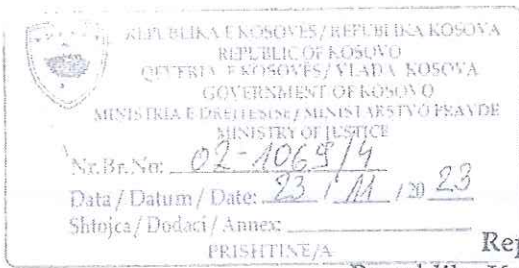 REPUBLIKA E KOSOVËS/REPUBLIKA KOSOVA
REPUBLIC OF KOSOVO
QEVERIA E KOSOVËS/VLADA KOSOVA
GOVERNMENT OF KOSOVO
MINISTRIA E DREJTËSISË/MINISTARSTVO PRAVDE
MINISTRY OF JUSTICE
Nr.Br.No: 02-1069/4
Data/Datum/Date: 23/11/2023
Shtojca/Dodaci/Annex:
PRISHTINË/A
Rep